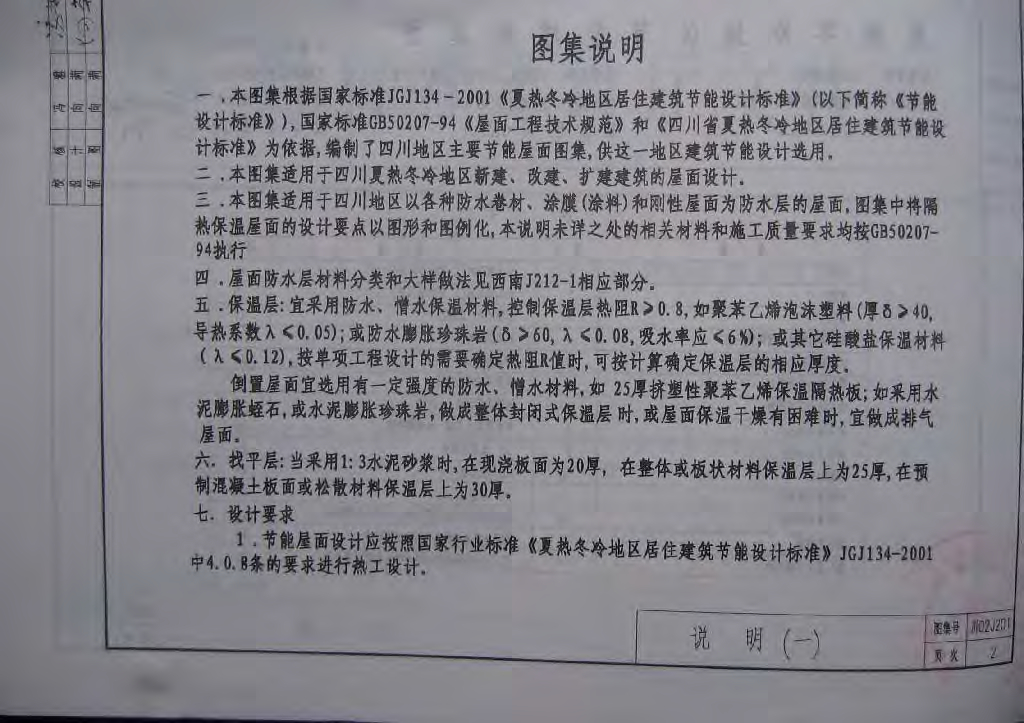 图集说明
一.本图集根据国家标准JGJ134-2001《夏热冬冷地区居住建筑节能设计标准》(以下简称《节能
设计标准》),国家标准GB50207-94《屋面工程技术规范》和《四川省夏热冬冷地区居住建筑节能设
计标准》为依据,编制了四川地区主要节能屋面图集,供这一地区建筑节能设计选用。
二.本图集适用于四川夏热冬冷地区新建、改建、扩建建筑的屋面设计。
三.本图集适用于四川地区以各种防水卷材、涂膜(涂料)和刚性屋面为防水层的屋面,图集中将隔
热保温屋面的设计要点以图形和图例化,本说明未详之处的相关材料和施工质量要求均按GB50207-
94执行
四.屋面防水层材料分类和大样做法见西南J212-1相应部分。
五.保温层:宜采用防水、憎水保温材料,控制保温层热阻R≥0.8,如聚苯乙烯泡沫塑料(厚δ≥40,
导热系数λ≤0.05);或防水膨胀珍珠岩(δ≥60,λ<0.08,吸水率应≤6%);或其它硅酸盐保温材料
(λ≤0.12),按单项工程设计的需要确定热阻R值时,可按计算确定保温层的相应厚度。
倒置屋面宜选用有一定强度的防水、憎水材料,如 25厚挤塑性聚苯乙烯保温隔热板;如采用水
泥膨胀蛭石,或水泥膨胀珍珠岩,做成整体封闭式保温层时,或屋面保温干燥有困难时,宜做成排气
屋面。
六.找平层:当采用1:3水泥砂浆时,在现浇板面为20厚, 在整体或板状材料保温层上为25厚,在预
制混凝土板面或松散材料保温层上为30厚。
七.设计要求
1.节能屋面设计应按照国家行业标准《夏热冬冷地区居住建筑节能设计标准》JGJ134-2001
中4.0.8条的要求进行热工设计。
说 明 (一)
图集号 川02J201
页次 2
校 核
设 计
制 图